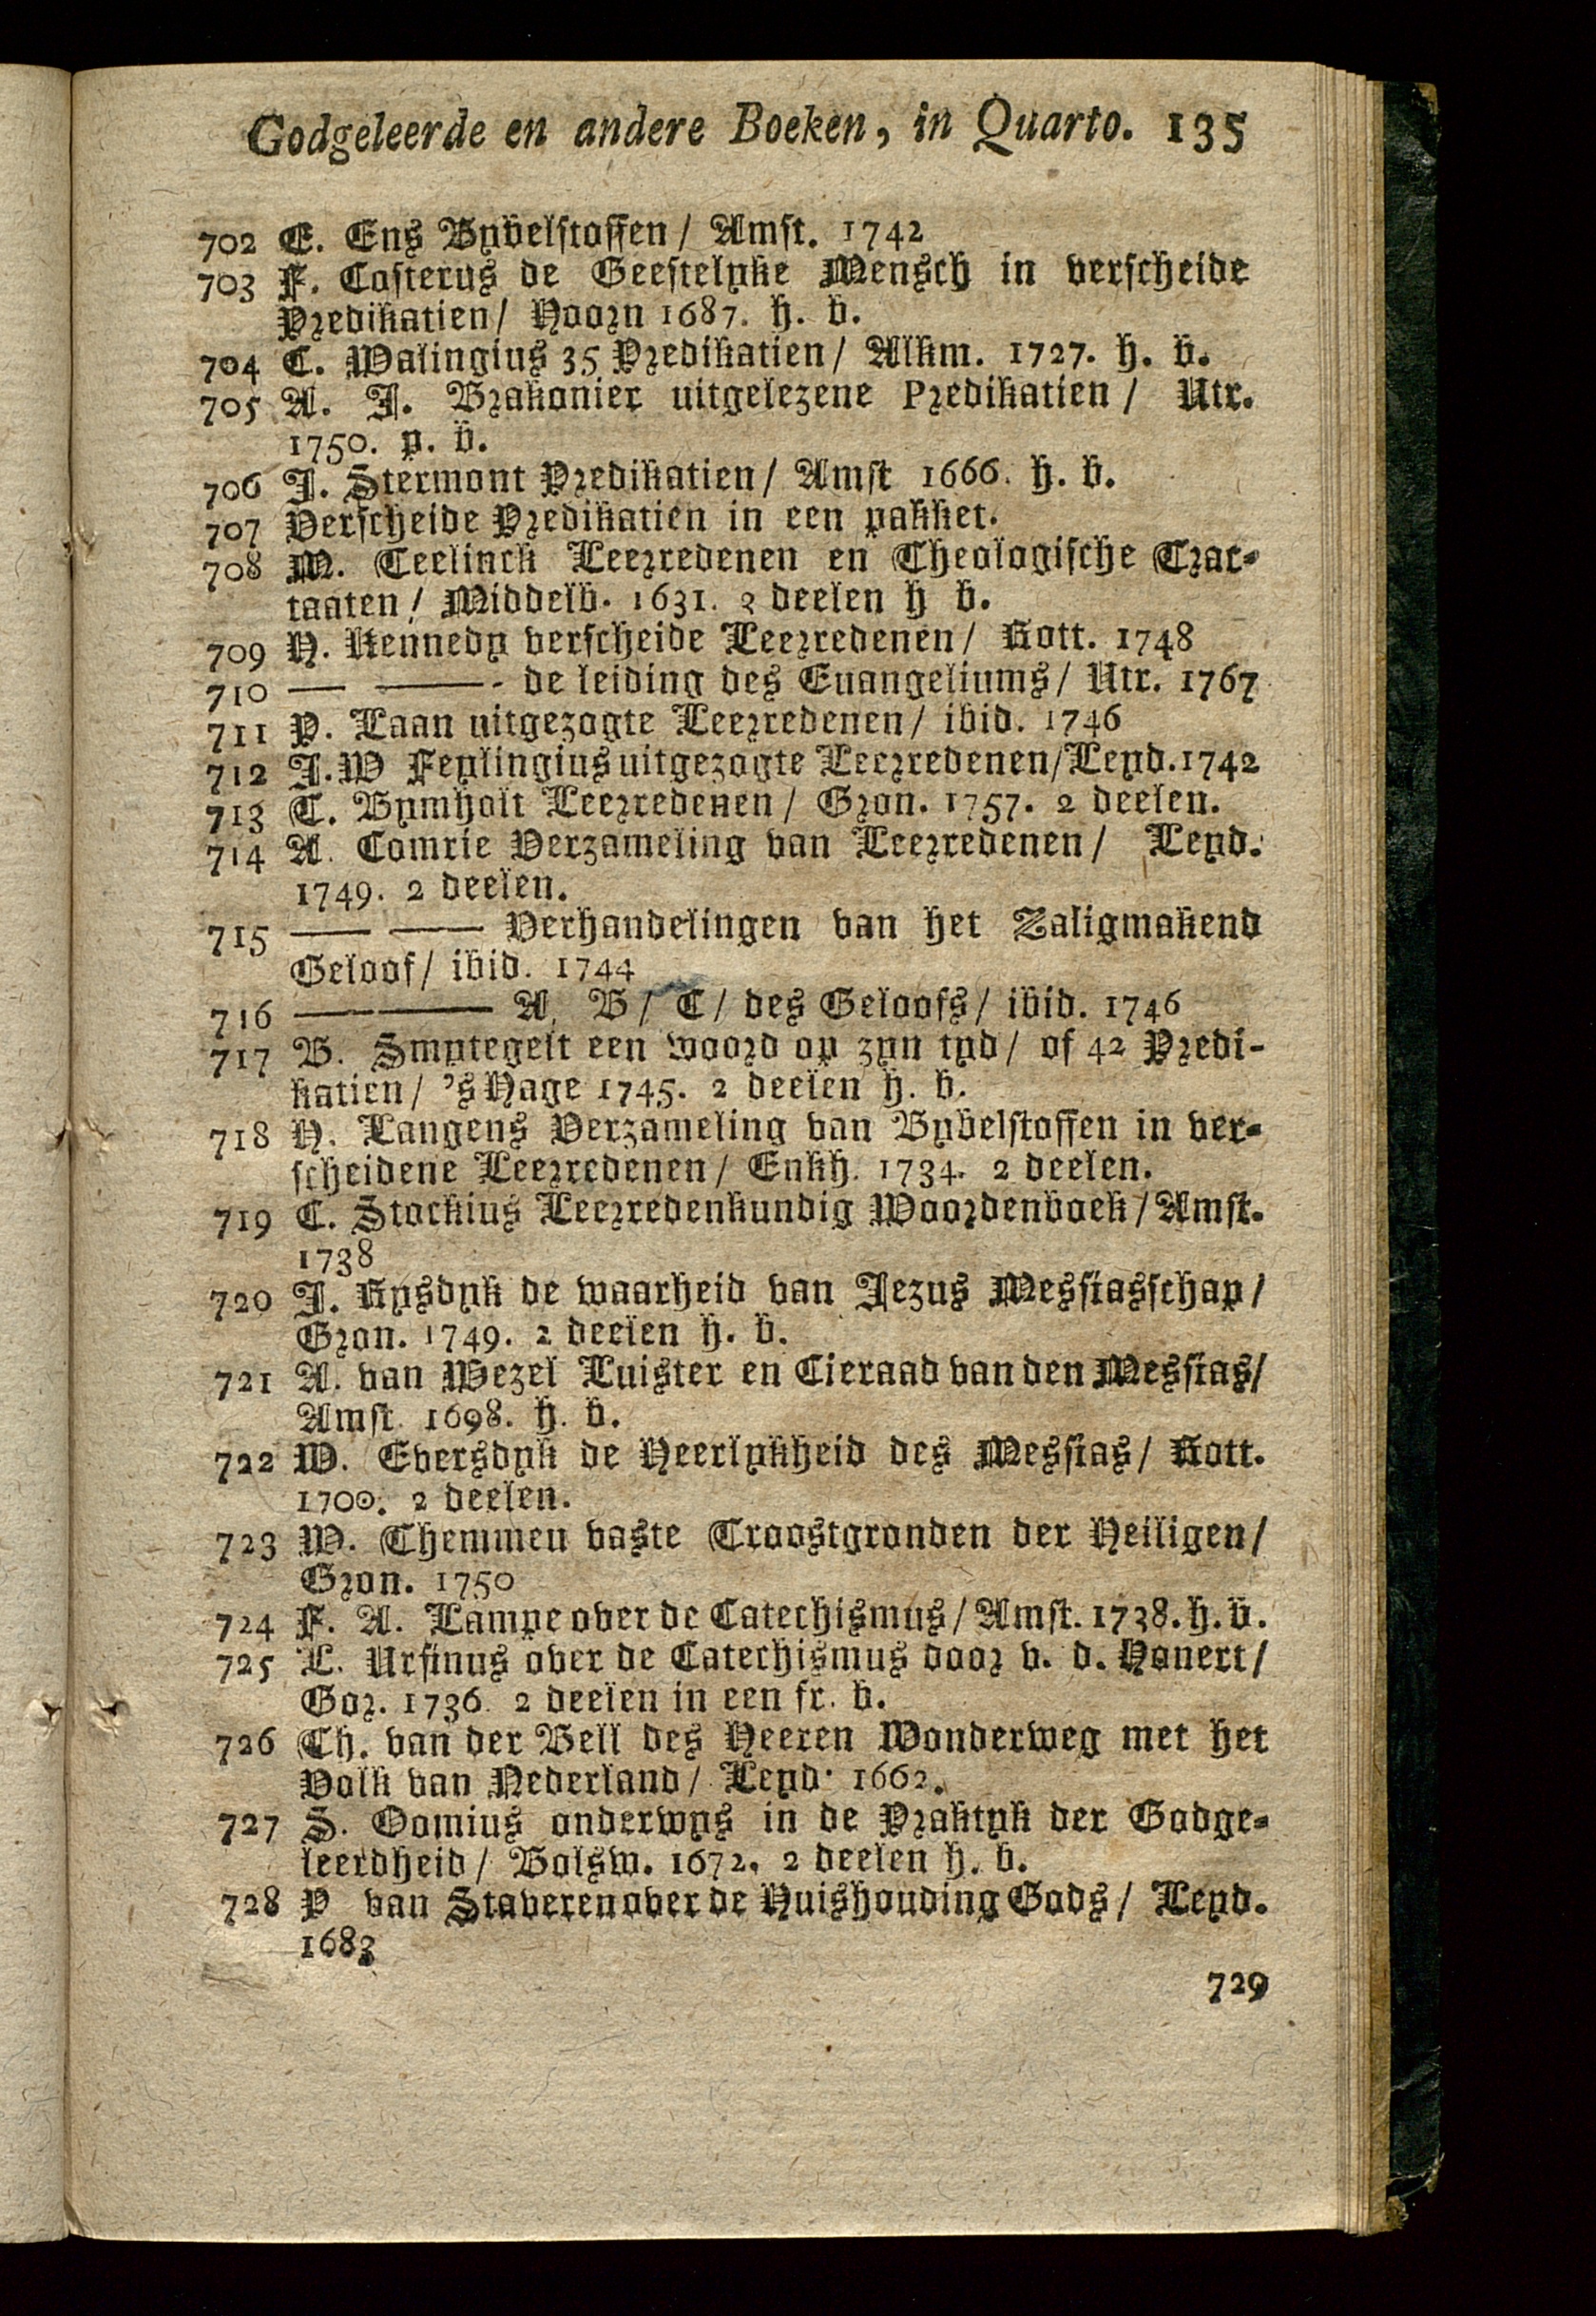 Godgeleerde en andere Boeken, in Quarto. 135
702 E. Ens Bybelstoffen / Amst. 1742
703 F. Costerus de Geestelyke Mensch in verscheide
Predikatien / Hoorn 1687. h. b.
704 C. Walingius 35 Predikatien / Alkm. 1727. h. b.
705 A. J. Brakonier uitgelezene Predikatien / Utr.
1750. p. b.
706 J. Stermont Predikatien / Amst 1666. h. b.
707 Verscheide Predikatien in een pakket.
708 M. Teelinck Leerredenen en Theologische Trac-
taaten / Middelb. 1631. 2 deelen h b.
709 H. Kennedy verscheide Leerredenen / Rott. 1748
710 — —— - de leiding des Euangeliums / Utr. 1767
711 P. Laan uitgezogte Leerredenen / ibid. 1746
712 J. W Feylingius uitgezogte Leerredenen / Leyd. 1742
713 T. Bymholt Leerredenen / Gron. 1757. 2 deelen.
714 A. Comrie Verzameling van Leerredenen / Leyd.
1749. 2 deelen.
715 —— —— Verhandelingen van het Zaligmakend
Geloof / ibid. 1744
716 —— —— A, B / C / des Geloofs / ibid. 1746
717 B. Smytegelt een woord op zyn tyd / of 42 Predi-
katien / 's Hage 1745. 2 deelen h. b.
718 H. Langens Verzameling van Bybelstoffen in ver-
scheidene Leerredenen / Enkh. 1734. 2 deelen.
719 C. Stockius Leerredenkundig Woordenboek / Amst.
1738
720 J. Rysdyk de waarheid van Jezus Messiasschap /
Gron. 1749. 2 deelen h. b.
721 A. van Wezel Luister en Cieraad van den Messias /
Amst. 1698. h. b.
722 W. Eversdyk de Heerlykheid des Messias / Rott.
1700. 2 deelen.
723 W. Themmen vaste Troostgronden der Heiligen /
Gron. 1750
724 F. A. Lampe over de Catechismus / Amst. 1738. h. b.
725 L. Ursinus over de Catechismus door v. d. Honert /
Gor. 1736. 2 deelen in een fr. b.
726 Th. van der Bell des Heeren Wonderweg met het
Volk van Nederland / Leyd. 1662.
727 S. Oomius onderwys in de Praktyk der Godge-
leerdheid / Bolsw. 1672. 2 deelen h. b.
728 P van Staveren over de Huishouding Gods / Leyd.
1683
729